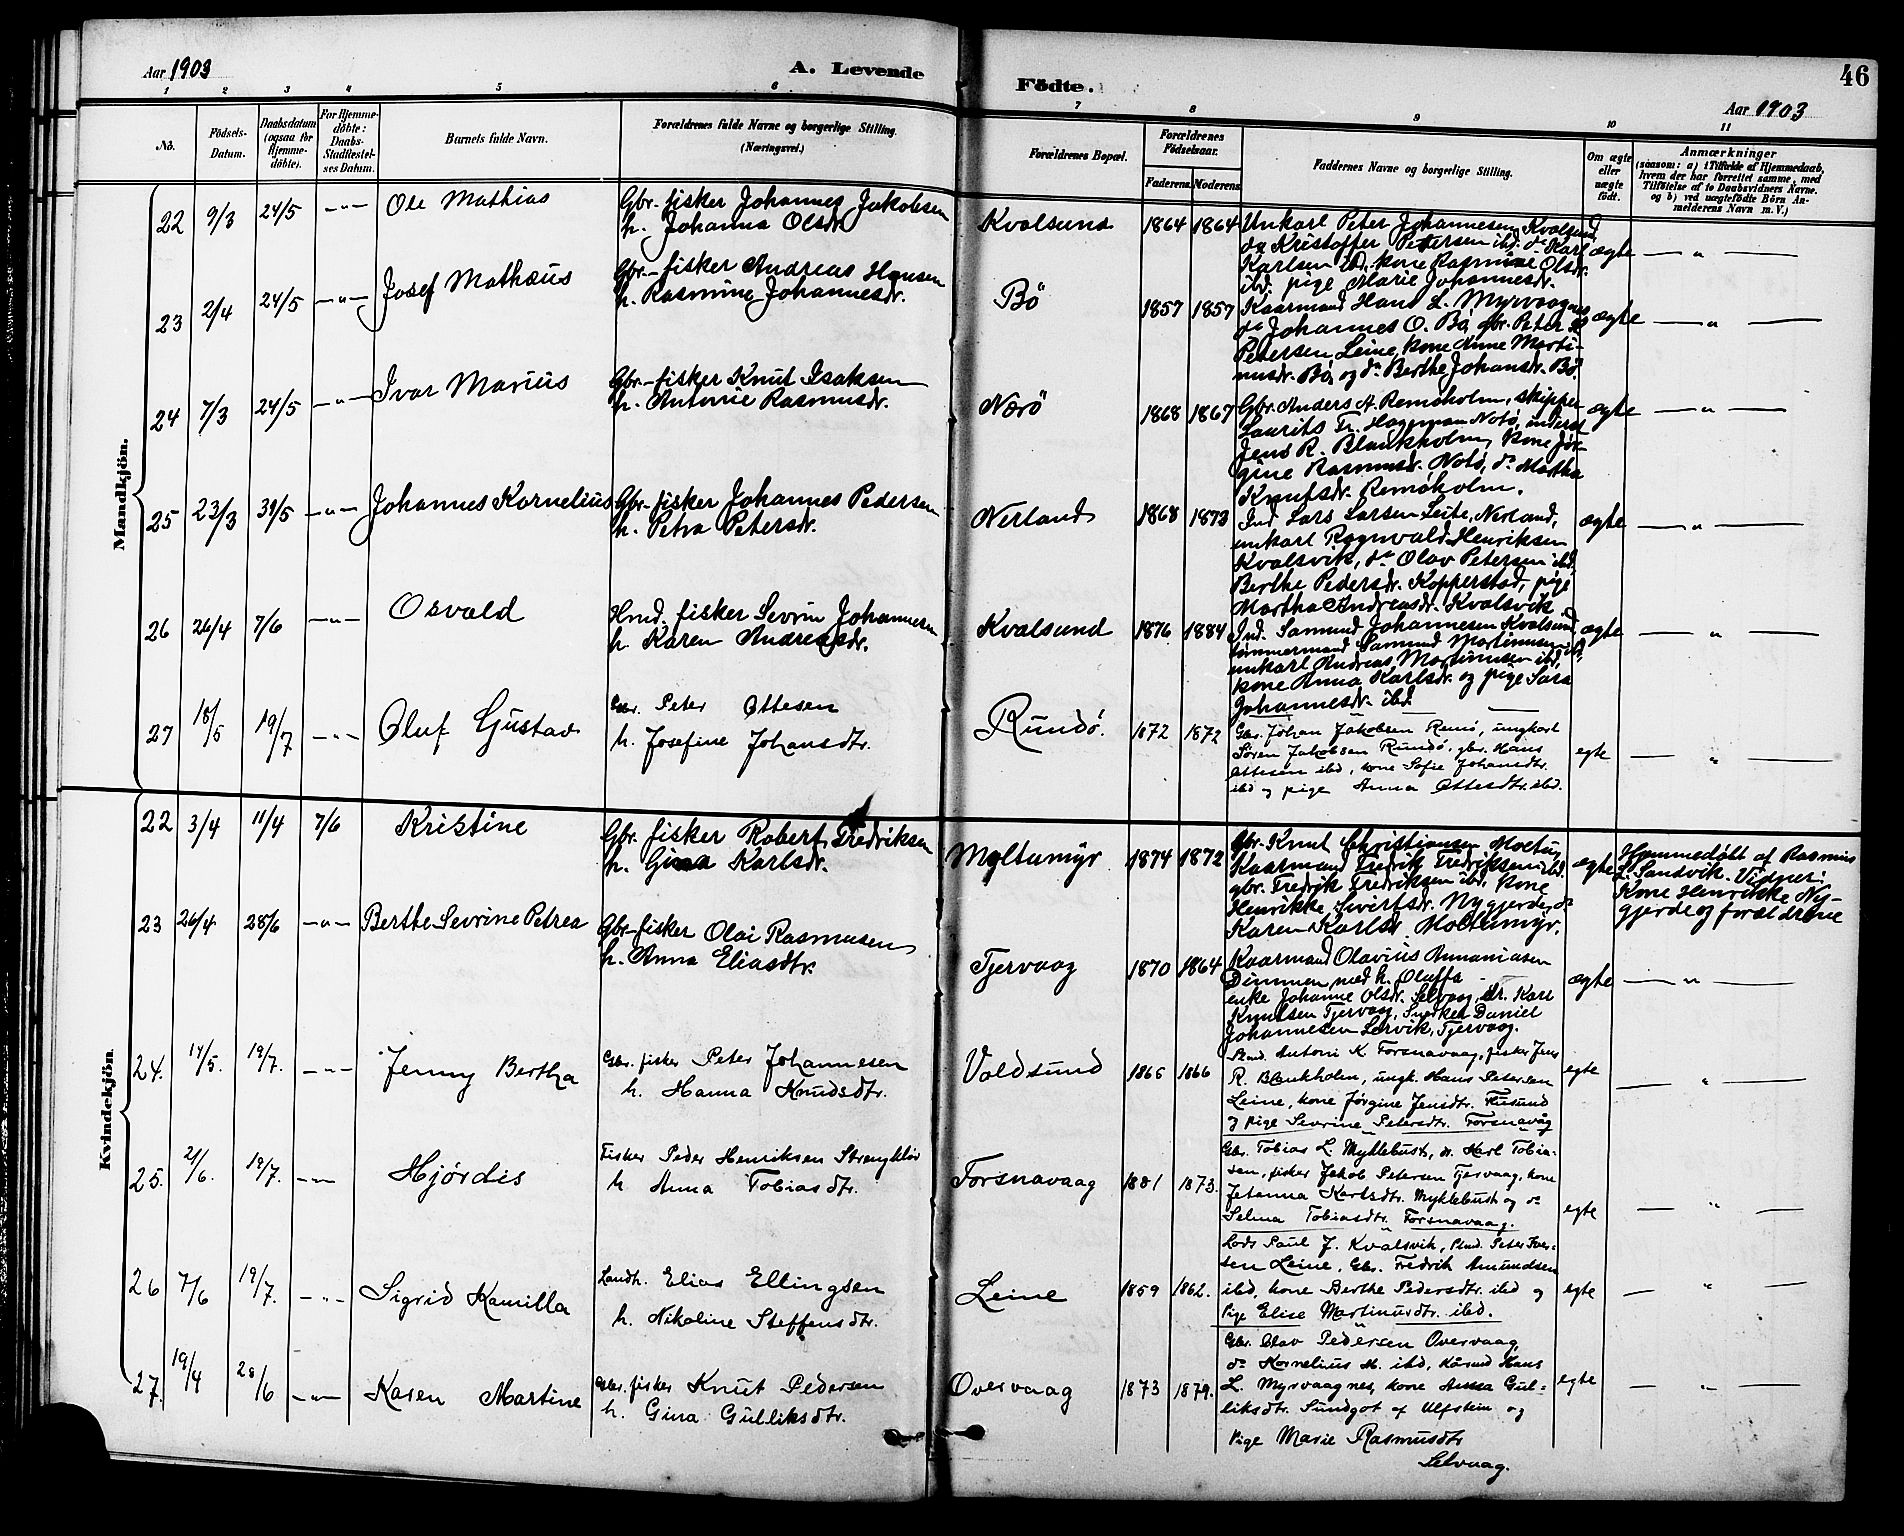 Aar 1903
A. Levende
Födte.
46
Aar 1903
1 2 3 4 5 6 7 8 9 10 11
No.
Födsels-
Datum.
Daabsdatum
(ogsaa for
Hjemme-
döbte).
For Hjemme-
döbte:
Daabs-
Stadfestel-
ses Datum.
Barnets fulde Navn.
Forældrenes fulde Navne og borgerlige Stilling.
(Næringsvei.)
Forældrenes Bopæl.
Forældrenes
Födselsaar.
Faderens. Moderens.
Faddernes Navne og borgerlige Stilling.
Om ægte
eller
uægte
født.
Anmærkninger
(saasom: a) i Tilfælde af Hjemmedaab,
hvem der har forrettet samme, med
Tilföielse af to Daabsvidners Navne.
og b) ved uægtefödte Börn An-
melderens Navn m. V.)
Mandkjön.
22 9/3 24/5 —"— Ole Mathias
Gbr. fisker Johannes Jakobsen
h. Johanna Olsdr.
Kvalsund 1864 1864
Unkarl Peter Johannesen Kvalsund,
do Kristoffer Petersen ibd. do Karl
Karlsen ibd. kone Rasmine Olsdr.
ibd. pige Marie Johannesdr.
ægte — " —
23 2/4 24/5 —"— Josef Mathæus
Gbr.-fisker Andreas Hansen
h. Rasmine Johannesdr.
Bö 1857 1857
Kaarmand Hans L. Myrvaagnes
do Johannes O. Bö, gbr. Peter
Petersen Leine, kone Anne Marti-
nusdr. Bö, og do Berthe Johansdr. Bö.
ægte — " —
24 7/3 24/5 —"— Ivar Marius
Gbr.-fisker Knut Isaksen
h. Antonie Rasmusdr.
Nærö 1868 1867
Gbr. Anders A. Remöholm, skipper
Laurits Fr. Notö, inderst
Jens R. Blankholm, kone Jör-
gine Rasmusdr. Notö, do Martha
Knutsdr. Remöholm.
ægte — " —
25 23/3 31/5 —"— Johannes Kornelius
Gbr.-fisker Johannes Pedersen
h. Petra Petersdr.
Nerland 1868 1873
Ind. Lars Larsen Leite, Nerland,
unkarl Rognvald Henriksen
Kvalsvik, do Olav Petersen ibd,
Berthe Pedersdr. Kopperstad, pige
Martha Andreasdr. Kvalsvik.
ægte — " —
26 26/4 7/6 —"— Osvald
fisker Sevrin Johannesen
h. Karen Andreasdr.
Kvalsund 1876 1884
Ind. Samund Johannesen Kvalsund,
tömmermand Samund Martinusen ibd,
unkarl Andreas Martinusen ibd,
kone Anna Karlsdr. og pige Sara
Johannesdr. ibd.
ægte — " —
27 18/5 19/7 —"— Oluf Gustav
Gbr. Peter Ottesen
h. Josefine Johansdtr.
Rundö. 1872 1872
Gbr. Johan Jakobsen Remö, ungkarl
Sören Jakobsen Rundö, gbr. Hans
Ottesen ibd, kone Sofie Johansdtr.
ibd og pige Anna Ottesdtr. ibd.
egte — " —
Kvindekjön.
22 3/4 11/4 7/6 Kristine
Gbr. fisker Robert Fredriksen
h. Gina Karlsdr.
Moltumyr 1874 1872
Gbr. Knut Christiansen Moltu,
Kaarmand Fredrik Fredriksen ibd.
gbr. Fredrik Fredriksen ibd. kone
Henrikke Sivertsdr. Nygjerde, do
Karen Karlsdr. Moltumyr.
ægte
Hjemmedöbt af Rasmus
L. Sandvik. Vidner:
Kone Henrikke Ny-
gjerde og forældrene
23 26/4 28/6 —"— Berthe Sevrine Petrea
Gbr-fisker Olai Rasmusen
h. Anna Eliasdtr.
Tjervaag 1870 1864
Kaarmand Olavius Annaniasen
Dimmen med h. Oluffa
enke Johanne Olsdr. Selvaag, dr. Karl
Knutsen Tjervaag, Snerker Daniel
Johannesen Lervik, Tjervaag.
ægte — " —
24. 17/5. 19/7. —"— Jenny Bertha
Gbr. fisker Peter Johannesen
h. Hanna Knudsdtr.
Voldsund 1865 1866
Antoni K. Forsnavaag, fisker Jens
R. Blankholm, ungk. Hans Petersen
Leine, kone Jörgine Jensdtr.
og pige Sevrine Petersdtr. Forsnavåg
egte — " —
25. 2/6. 19/7. —"— Hjördis
Fisker Peder Henriksen
h. Anna Tobiasdtr.
Forsnavaag 1881 1873.
Gbr. Tobias L. Myklebust, dr. Karl Tobia-
sen, fisker Jakob Petersen Tjervaag, kone
Jetanna Karlsdtr. Myklebust og do
Selina Tobiasdtr. Forsnavaag.
egte — " —
26 7/6 19/7. —"— Sigrid Kamilla
Landh. Elias Ellingsen
h. Nikoline Steffensdtr.
Leine 1859 1862.
Lods Paul J. Kvalsvik, Peter Iver-
sen Leine, Gbr. Fredrik Amundsen
ibid, kone Berthe Pedersdtr. ibd og
Pige Elise Martinusdtr. ibd.
egte — " —
27. 19/4 28/6 —"— Karen Martine
Gbr. fisker Knut Pedersen
h. Gina Gulliksdtr.
Overvaag 1873 1879.
Gbr. Olav Pedersen Overvaag,
do Kornelius M. ibd, Kårmd Hans
L. Myrvaagnes, kone Anna Gul-
liksdtr. Sundgot af Ulfstein og
Pige Marie Rasmusdtr
Selvaag.
egte — " —